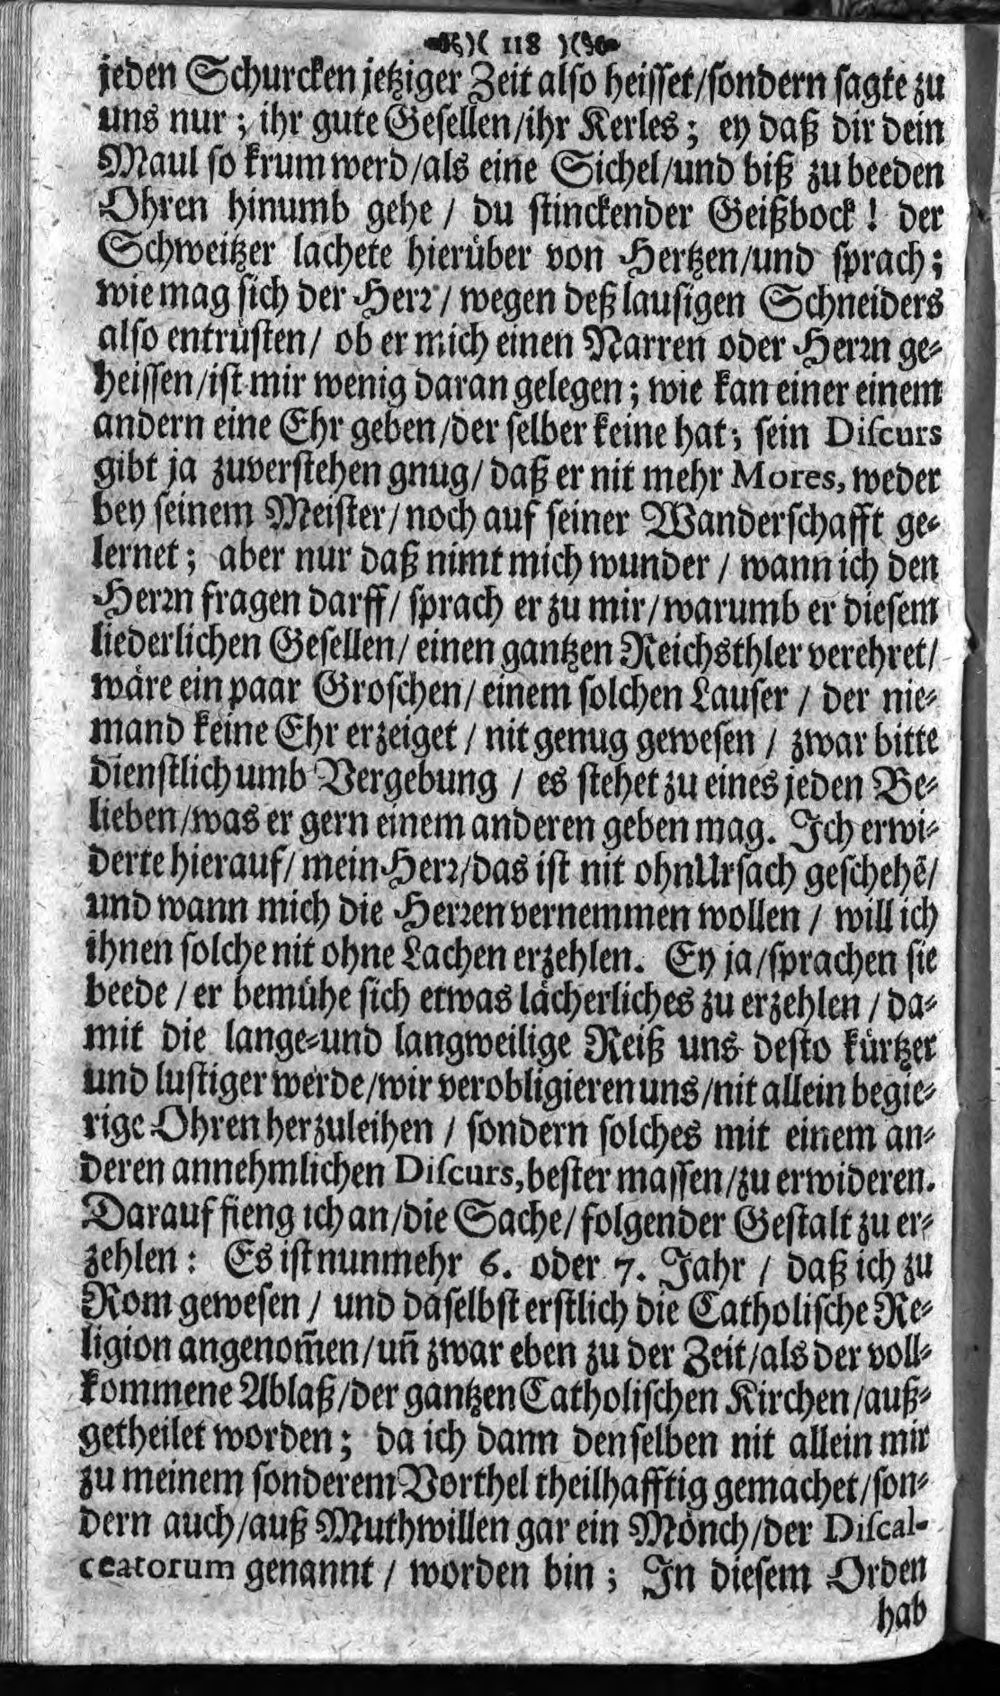 )( 118 )(
jeden Schurcken jetziger Zeit also heisset/sondern sagte zu
uns nur; ihr gute Gesellen/ihr Kerles; ey daß dir dein
Maul so krum werd/als eine Sichel/und biß zu beeden
Ohren hinumb gehe / du stinckender Geißbock! der
Schweitzer lachete hierüber von Hertzen/und sprach;
wie mag sich der Herr/ wegen deß lausigen Schneiders
also entrüsten/ ob er mich einen Narren oder Herrn ge-
heissen/ist mir wenig daran gelegen; wie kan einer einem
andern eine Ehr geben/der selber keine hat; sein Discurs
gibt ja zuverstehen gnug/ daß er nit mehr Mores, weder
bey seinem Meister/ noch auf seiner Wanderschafft ge-
lernet; aber nur daß nimt mich wunder / wann ich den
Herrn fragen darff/ sprach er zu mir/warumb er diesem
liederlichen Gesellen/ einen gantzen Reichsthler verehret/
wäre ein paar Groschen/ einem solchen Lauser / der nie-
mand keine Ehr erzeiget / nit genug gewesen / zwar bitte
dienstlich umb Vergebung / es stehet zu eines jeden Be-
lieben/was er gern einem anderen geben mag. Ich erwi-
derte hierauf/ mein Herr/das ist nit ohn Ursach gescheh̃e/
und wann mich die Herren vernemmen wollen / will ich
ihnen solche nit ohne Lachen erzehlen. Ey ja/sprachen sie
beede / er bemühe sich etwas lächerliches zu erzehlen / da-
mit die lange-und langweilige Reiß uns desto kürtzer
und lustiger werde/wir verobligieren uns/nit allein begie-
rige Ohren herzuleihen / sondern solches mit einem an-
deren annehmlichen Discurs, bester massen/zu erwideren.
Darauf fieng ich an/die Sache/ folgender Gestalt zu er-
zehlen: Es ist nunmehr 6. oder 7. Jahr / daß ich zu
Rom gewesen / und daselbst erstlich die Catholische Re-
ligion angenom̃en/uñ zwar eben zu der Zeit/als der voll-
kommene Ablaß/der gantzen Catholischen Kirchen/auß-
getheilet worden; da ich dann denselben nit allein mir
zu meinem sonderem Vorthel theilhafftig gemachet/son-
dern auch/auß Muthwillen gar ein Mönch/der Discal-
ceatorum genannt / worden bin; In diesem Orden
hab